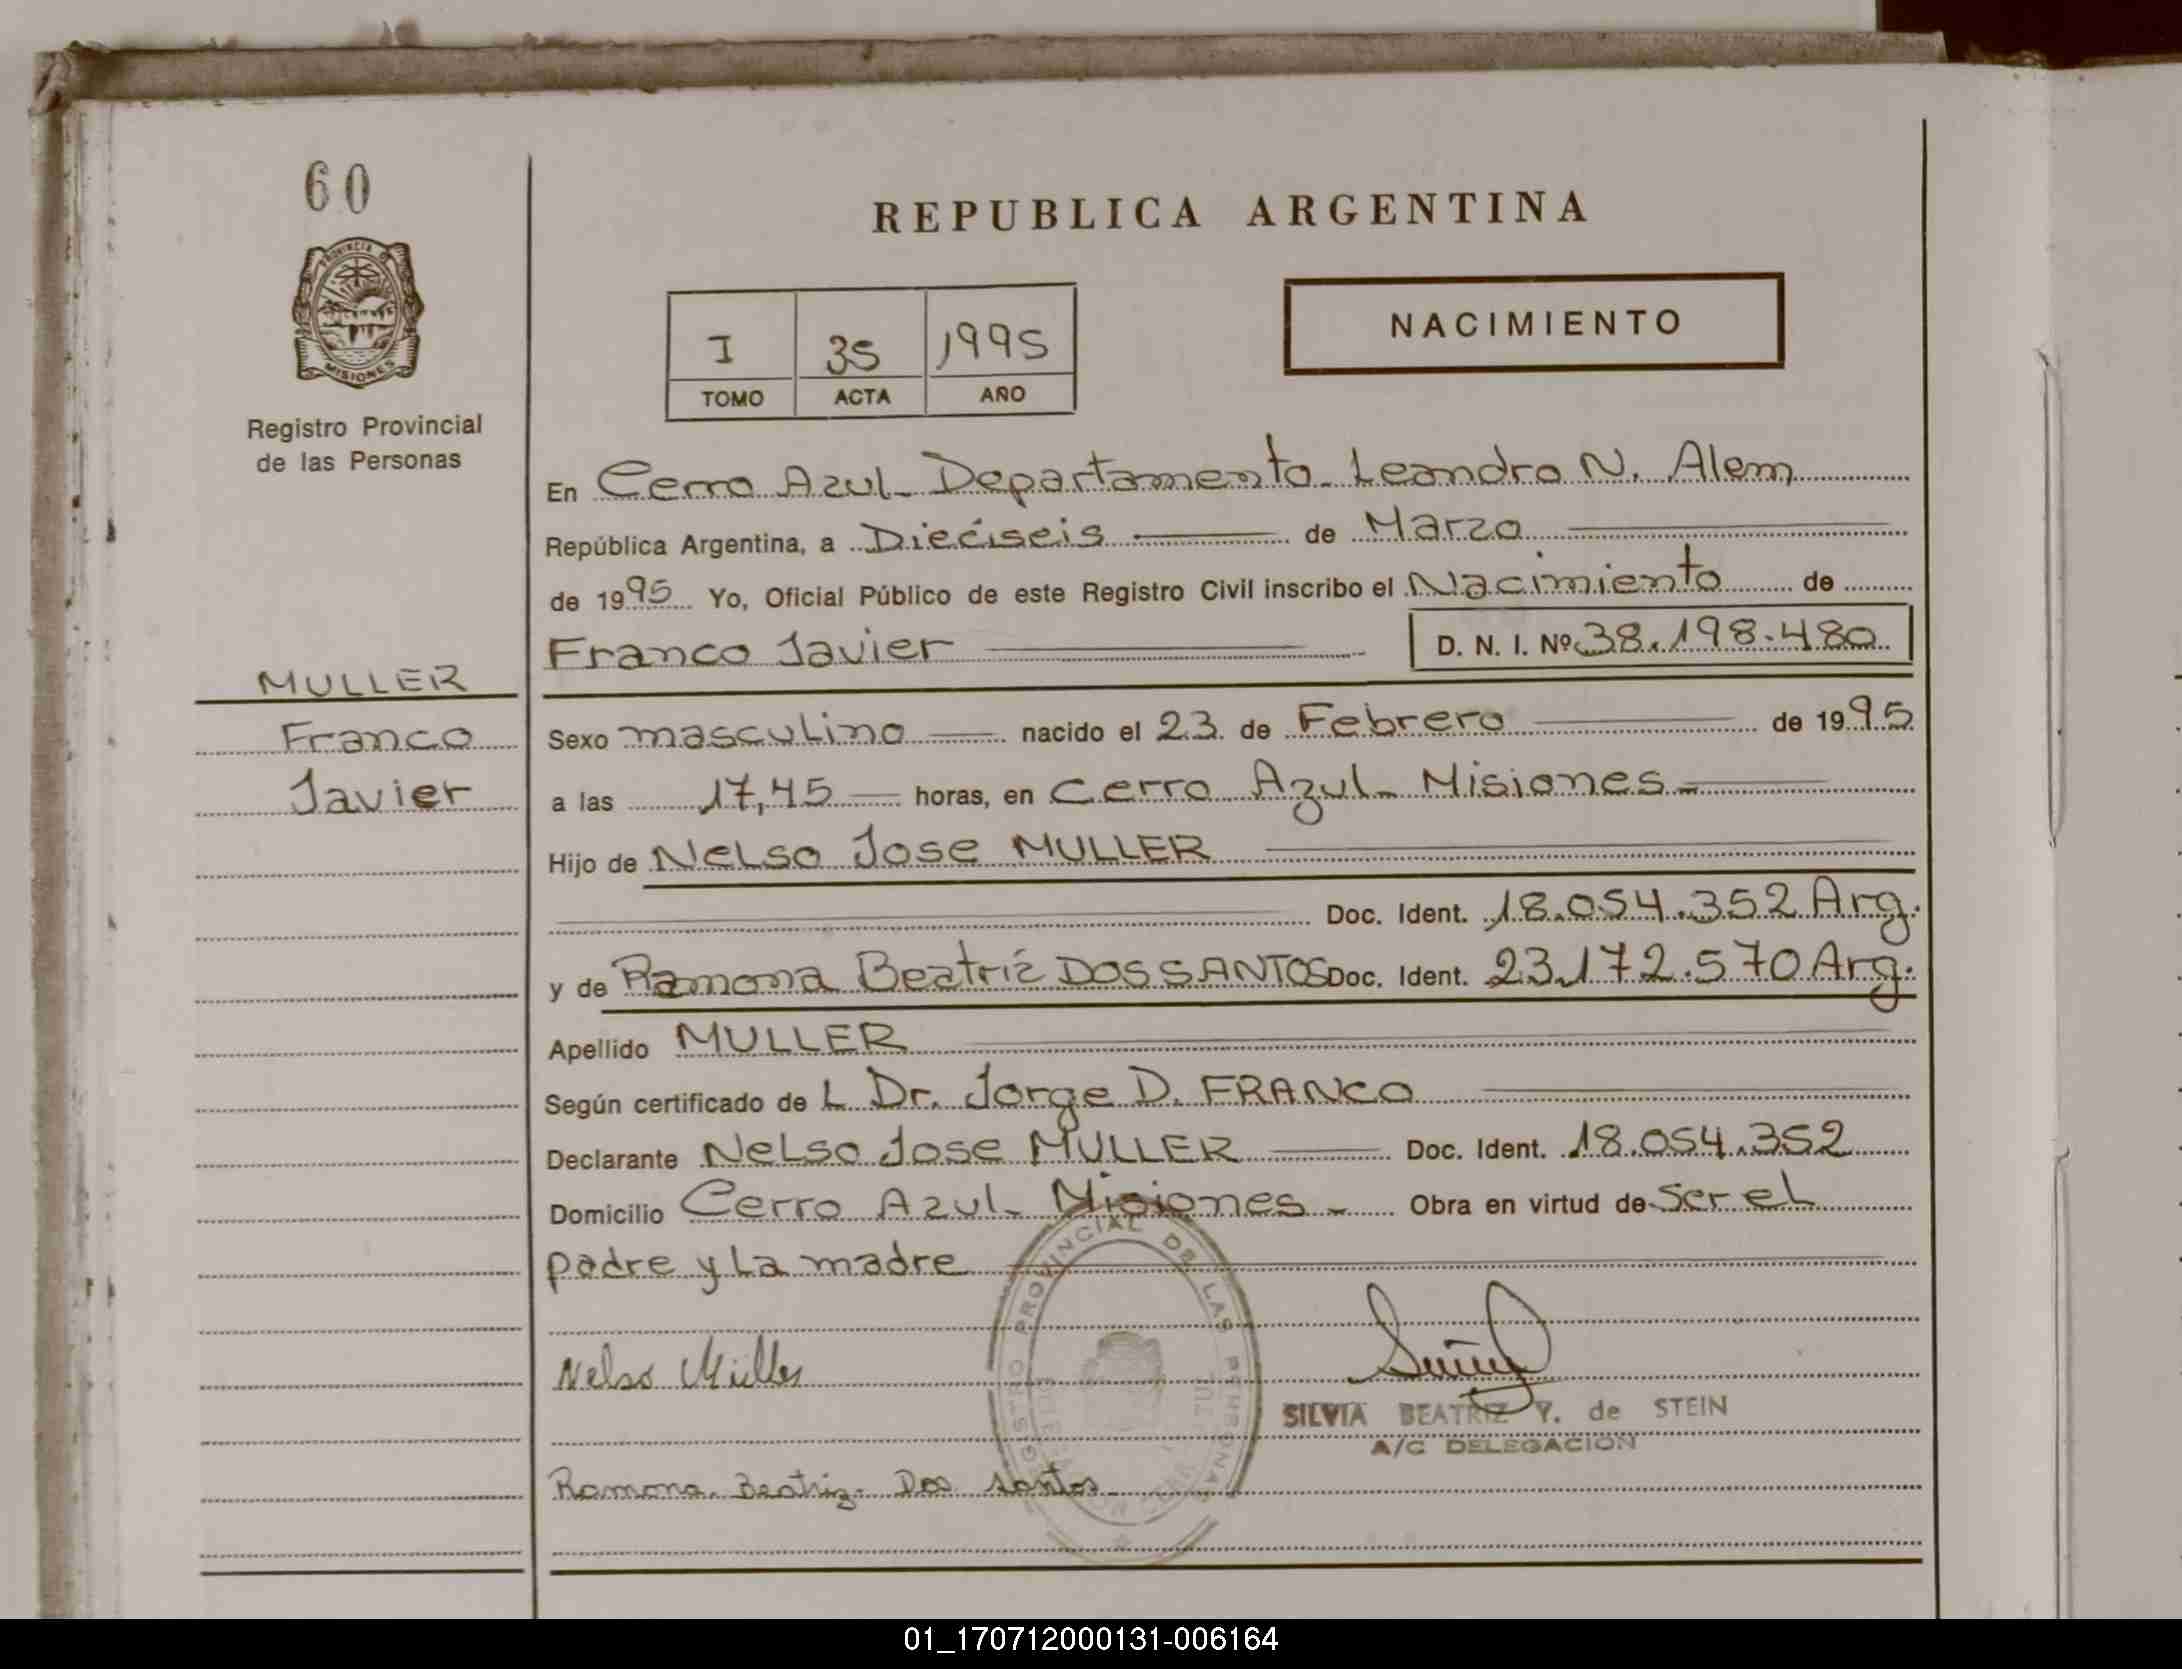 60
PROVINCIA DE
MISIONES
Registro Provincial
de las Personas
MULLER
Franco
Javier
REPUBLICA ARGENTINA
I 35 1995
TOMO ACTA AÑO
NACIMIENTO
En Cerro Azul - Departamento - Leandro N. Alem
República Argentina, a Dieciseis de Marzo
de 1995 Yo, Oficial Público de este Registro Civil inscribo el Nacimiento de
Franco Javier D. N. I. Nº 38.198.480
Sexo masculino nacido el 23 de Febrero de 1995
a las 17,45 horas, en Cerro Azul - Misiones -
Hijo de Nelso Jose MULLER
Doc. Ident. 18.054.352 Arg.
y de Ramona Beatriz DOS SANTOS Doc. Ident. 23.172.570 Arg.
Apellido MULLER
Según certificado de L Dr. Jorge D. FRANCO
Declarante Nelso Jose MULLER Doc. Ident. 18.054.352
Domicilio Cerro Azul - Misiones - Obra en virtud de Ser el
padre y la madre
REGISTRO PROVINCIAL DE LAS PERSONAS
Nelso Müller
SILVIA BEATRIZ Y. de STEIN
A/C DELEGACION
Ramona Beatriz Dos Santos
01_170712000131-006164